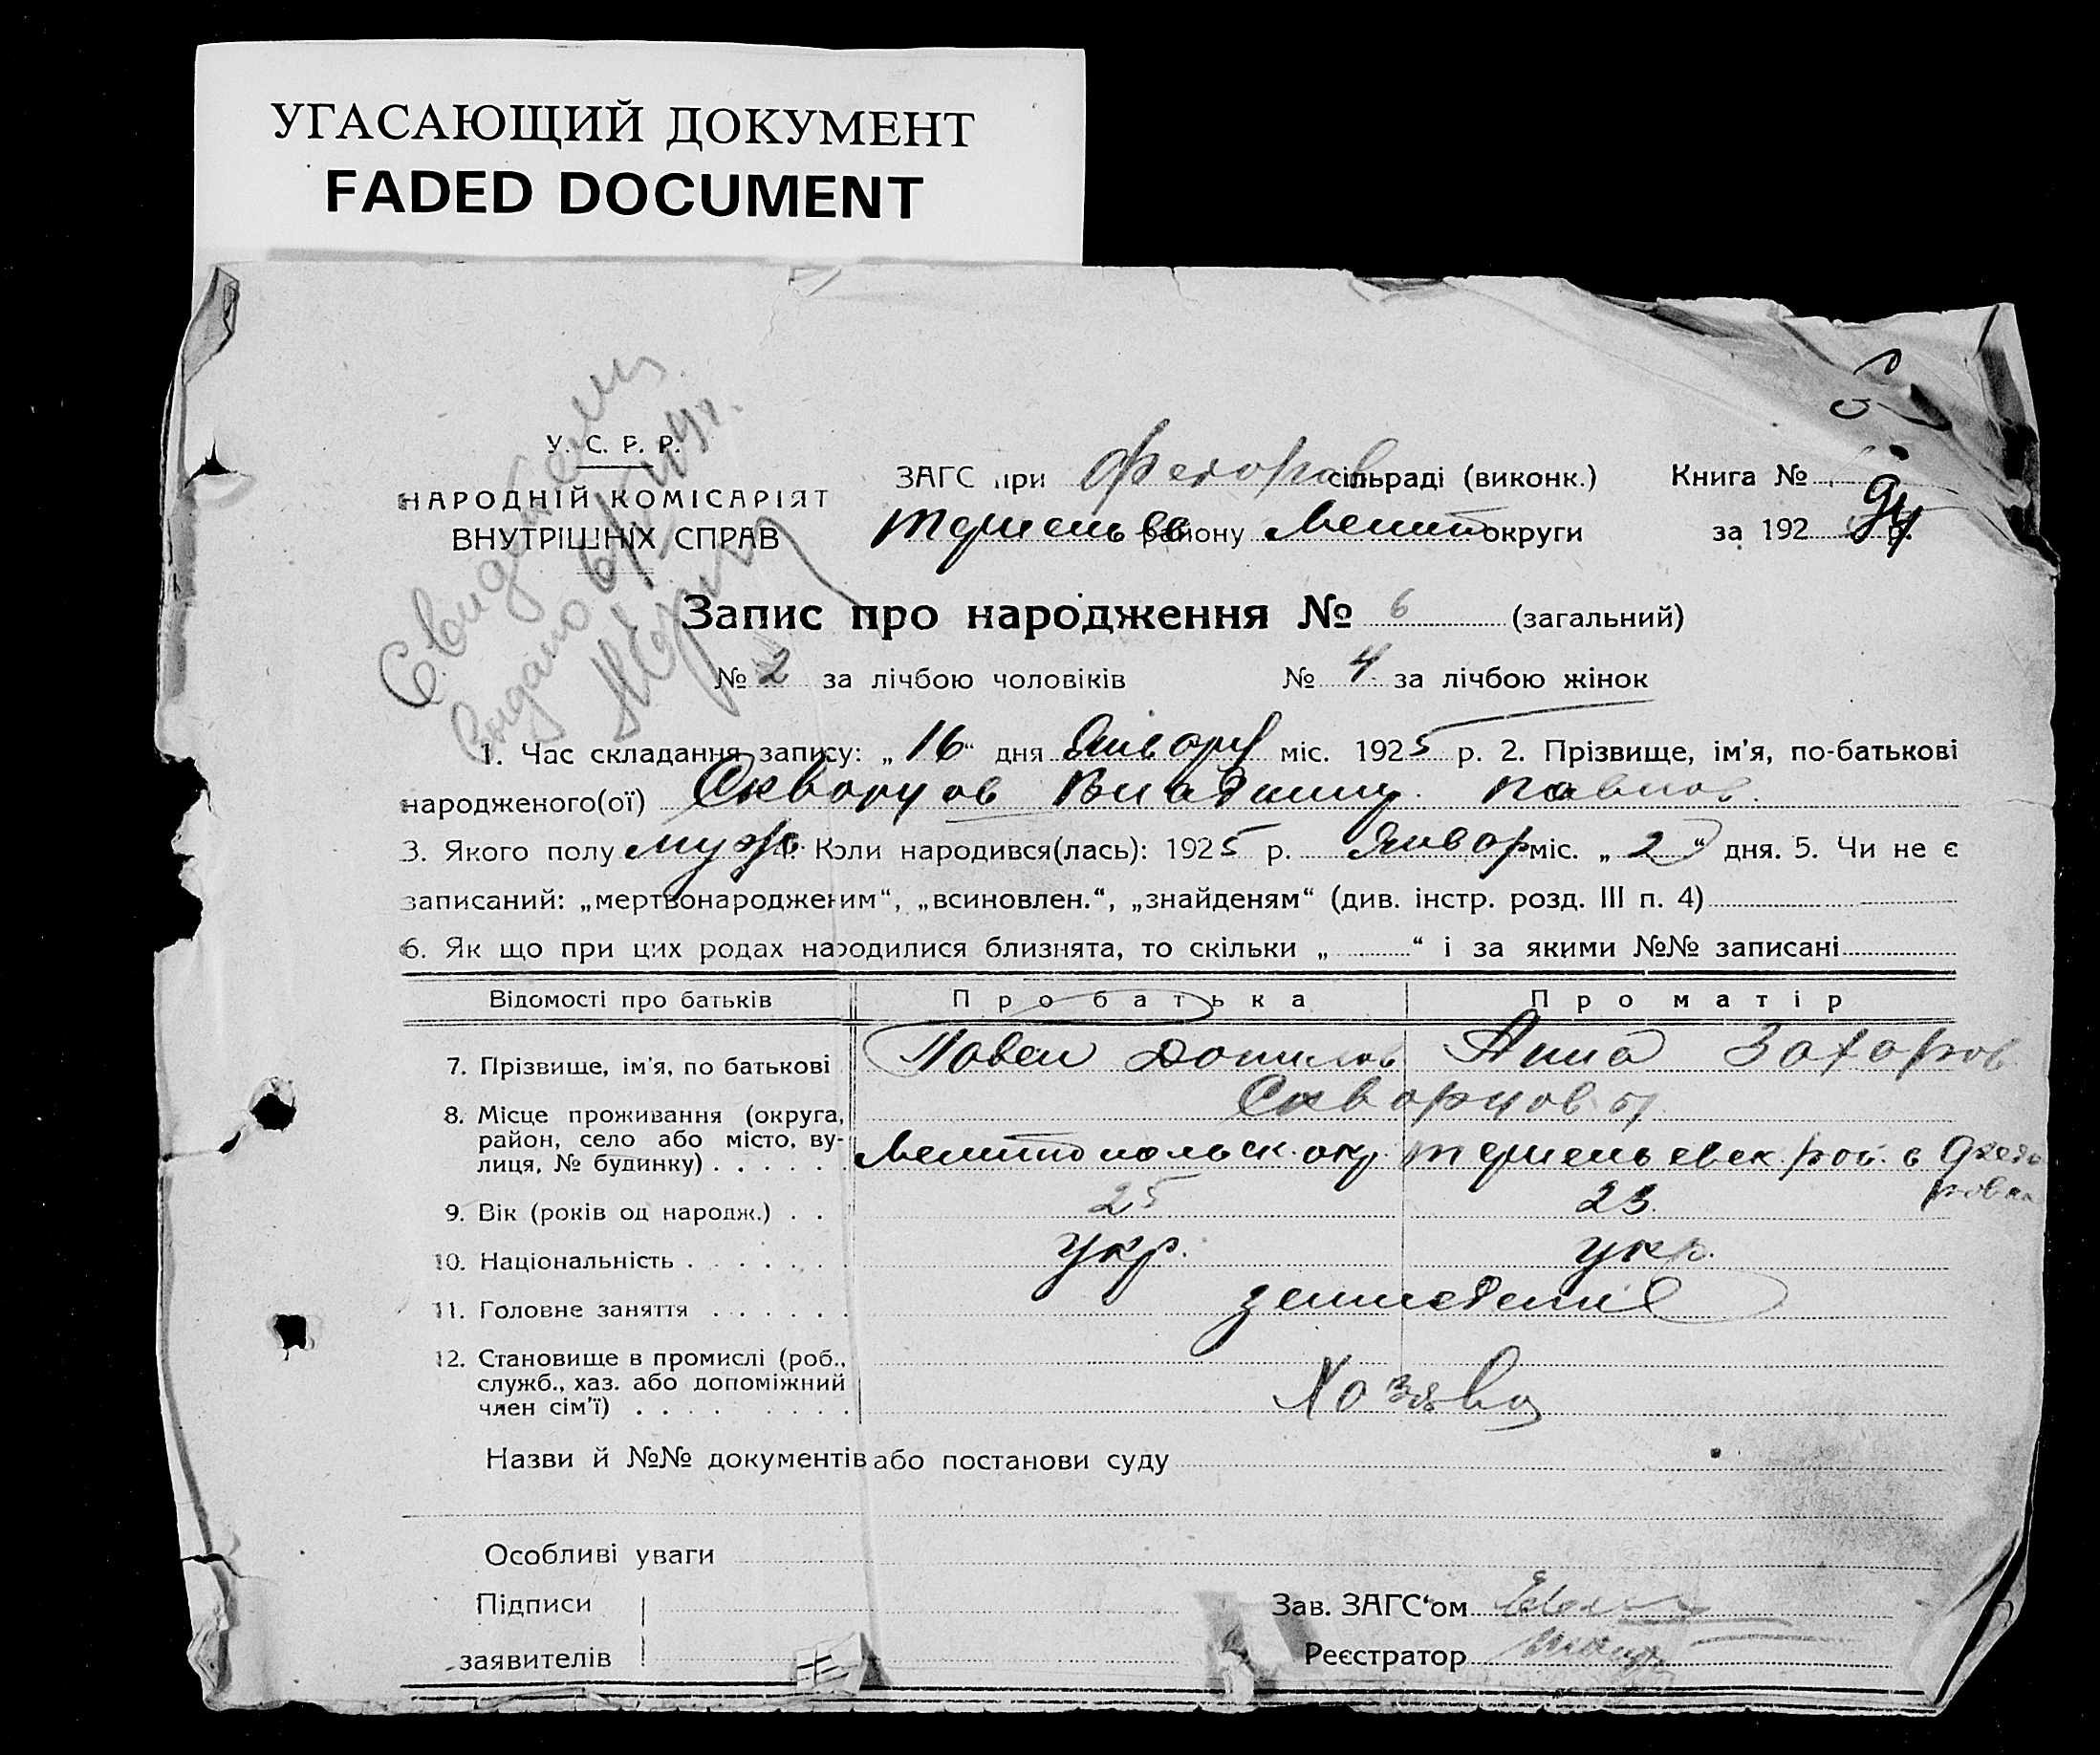 УГАСАЮЩИЙ ДОКУМЕНТ
FADED DOCUMENT
У. С. Р. Р.
НАРОДНІЙ КОМІСАРІЯТ
ВНУТРІШНІХ СПРАВ
ЗАГС при Федоров сільраді (виконк.) Книга №
району Мелит округи за 192 р.
Запис про народження № 6 (загальний)
№ 2 за лічбою чоловіків № 4 за лічбою жінок
1. Час складання запису: „16“ дня Января міс. 1925 р. 2. Прізвище, ім'я, по-батькові
народженого(ої) Скворцов Владимир Павлов.
3. Якого полу муж. 4. Коли народився(лась): 1925 р. Январ міс. „2“ дня. 5. Чи не є
записаний: „мертвонародженим“, „всиновлен.“, „знайденям“ (див. інстр. розд. III п. 4)
6. Як що при цих родах народилися близнята, то скільки „ “ і за якими №№ записані
Відомості про батьків Про батька Про матір
7. Прізвище, ім'я, по батькові Павел Данилов Анна Захаров
Скворцовы
8. Місце проживання (округа,
район, село або місто, ву-
лиця, № будинку) Мелитопольск. окр. рай. с Федо
ровка
9. Вік (років од народж.) 25 23.
10. Національність укр. укр.
11. Головне заняття земледелие
12. Становище в промислі (роб.,
служб., хаз. або допоміжний
член сім'ї) Хозяева
Назви й №№ документів або постанови суду
Особливі уваги
Підписи
заявителів
Зав. ЗАГС‘ом
Реєстратор